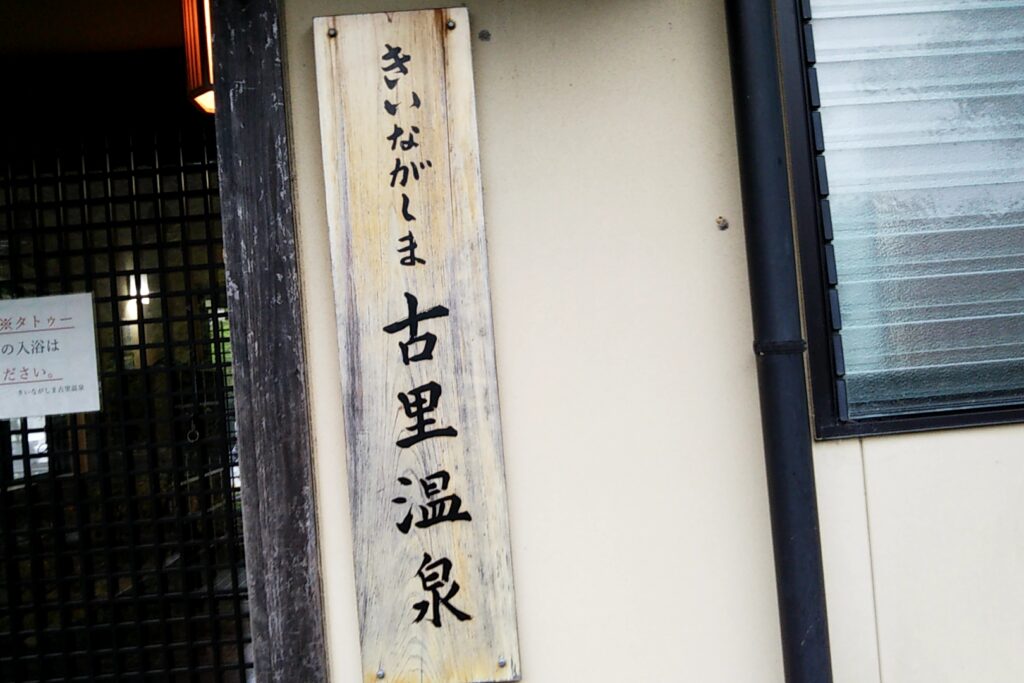 きいながしま古里温泉
※タトゥー
の入浴は
ださい。
きいながしま古里温泉